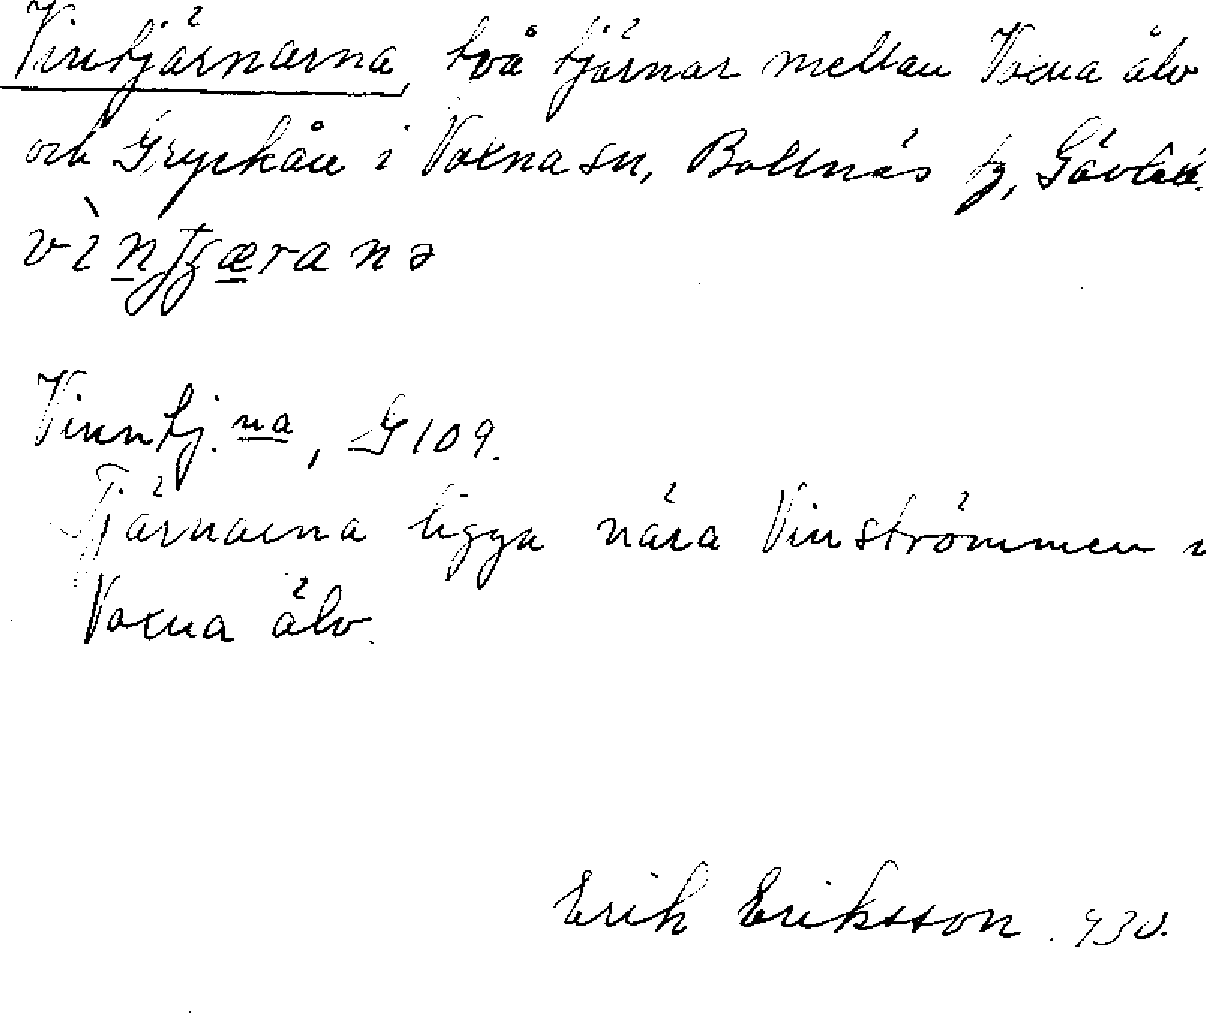 Vintjärnarna, två tjärnar mellan Voxna älv
och Gryckån i Voxna sn, Bollnäs tg, Gävleb.
vìnʃæranə
Vinntj.na, G 109.
Tjärnarna ligga nära Vinströmmen i
Voxna älv.
Erik Eriksson. 930.